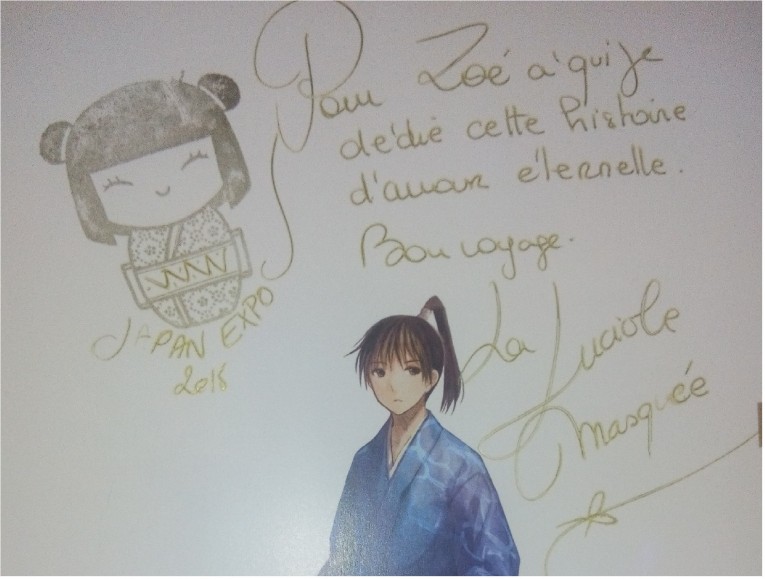 Pour Zoé à qui je
dédie cette histoire
d'amour éternelle.
Bon voyage.
La Luciole
Masquée
JAPAN EXPO
2018